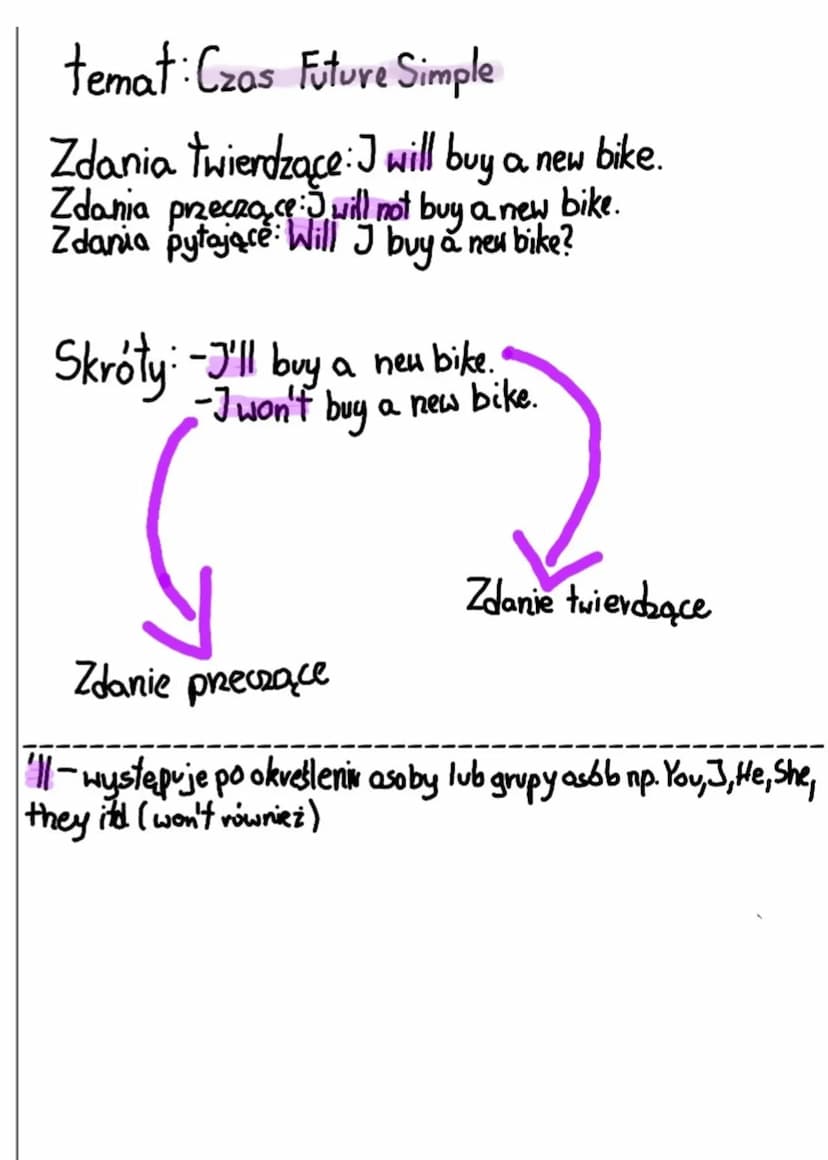 temat: Czas Future Simple
Zdania twierdzące: I will buy a new bike.
Zdania przeczące: I will not buy a new bike.
Zdania pytające: Will I buy a new bike?
Skróty: -I'll buy a new bike.
-I won't buy a new bike.
Zdanie twierdzące
Zdanie przeczące
'll - występuje po określeniu osoby lub grupy osób np. You, I, He, She,
they itd (won't również)